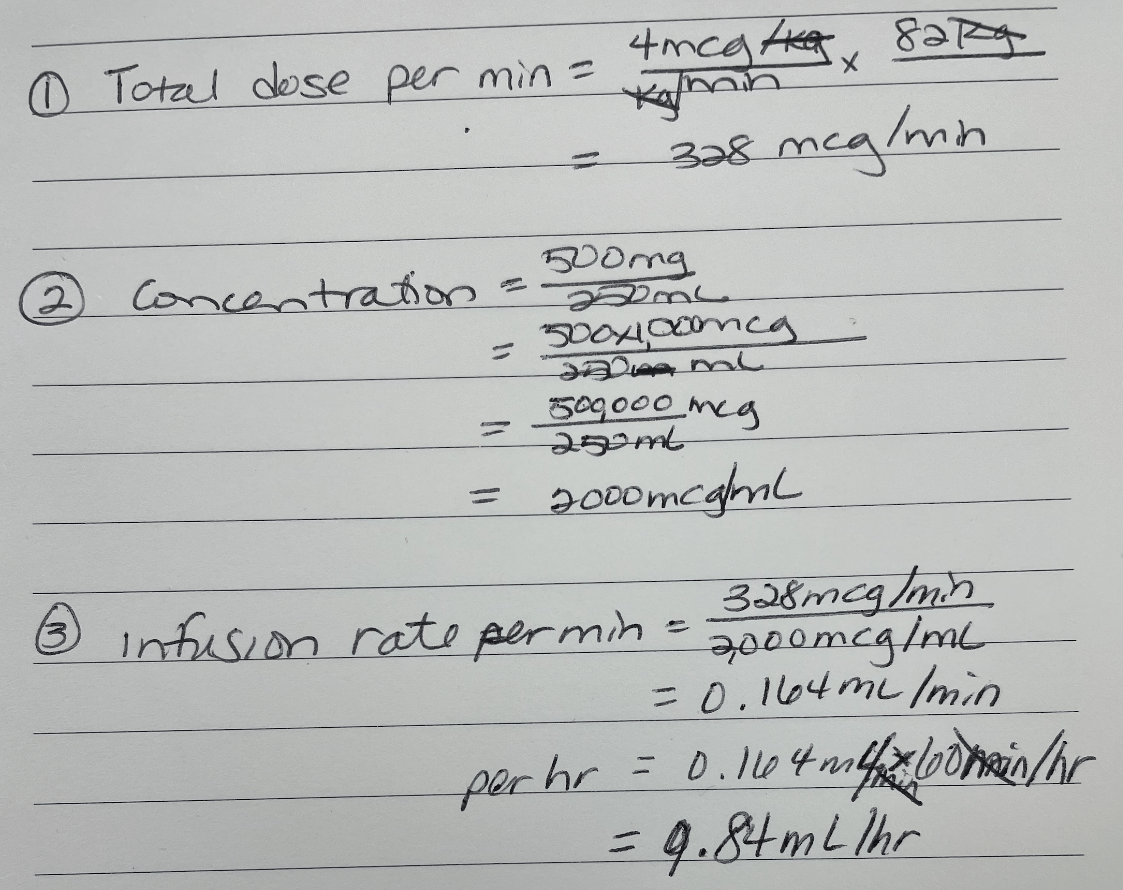 ① Total dose per min = 4mcg/kg/kg/min × 82kg
= 328 mcg/min
② Concentration = 500mg/250mL
= 500x1,000mcg/250 mL
= 500,000 mcg/250mL
= 2000mcg/mL
③ infusion rate per min = 328mcg/min/2,000mcg/mL
= 0.164mL/min
per hr = 0.164mL/min x 60min/hr
= 9.84mL/hr